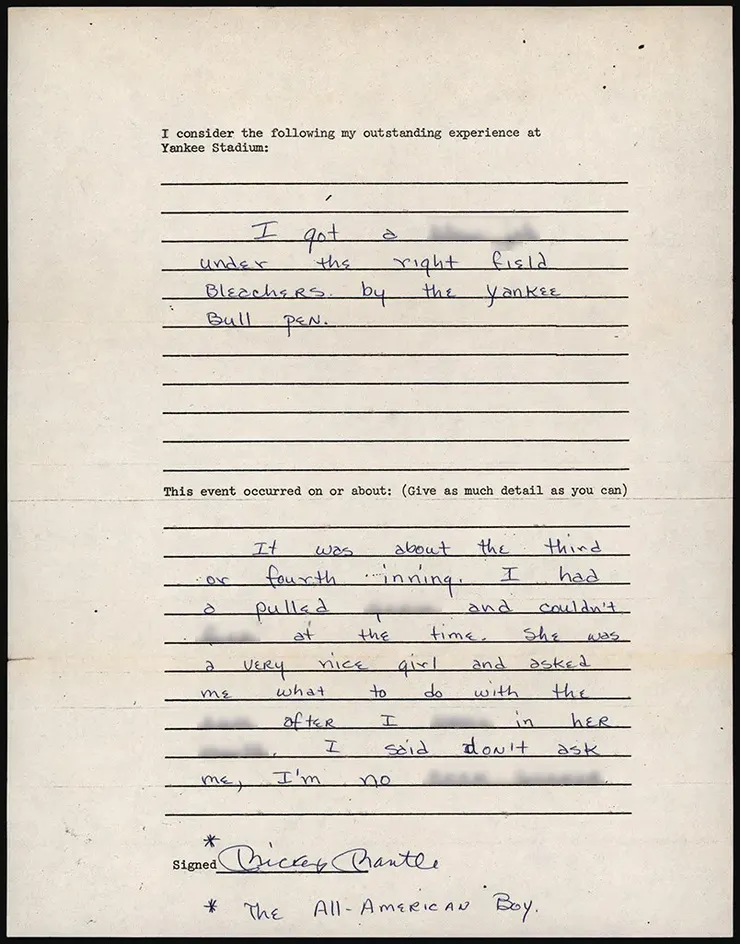 I consider the following my outstanding experience at
Yankee Stadium:
I got a
under the right field
Bleachers. by the Yankee
Bull pen.
This event occurred on or about: (Give as much detail as you can)
It was about the third
or fourth inning. I had
a pulled and couldn't
at the time. She was
a very nice girl and asked
me what to do with the
after I in her
. I said don't ask
me, I'm no
*
Signed Mickey Mantle
* The All-American Boy.